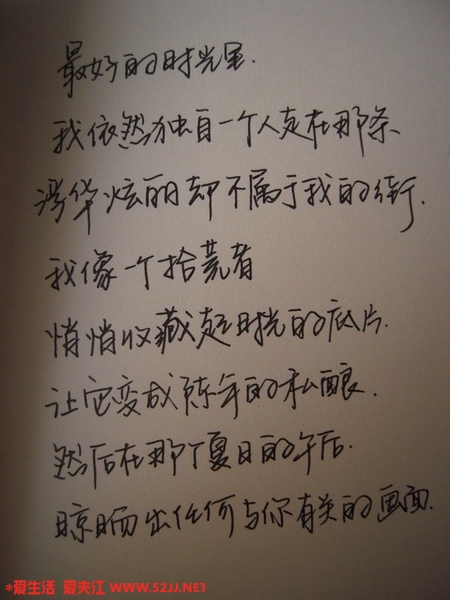 最好的时光里.
我依然独自一个人走在那条
浮华炫丽却不属于我的街.
我像一个拾荒者
悄悄收藏起时光的底片.
让它变成陈年的私酿.
然后在那个夏日的午后.
晾晒出任何与你有关的画面.
*爱生活 爱夹江 WWW.52JJ.NET